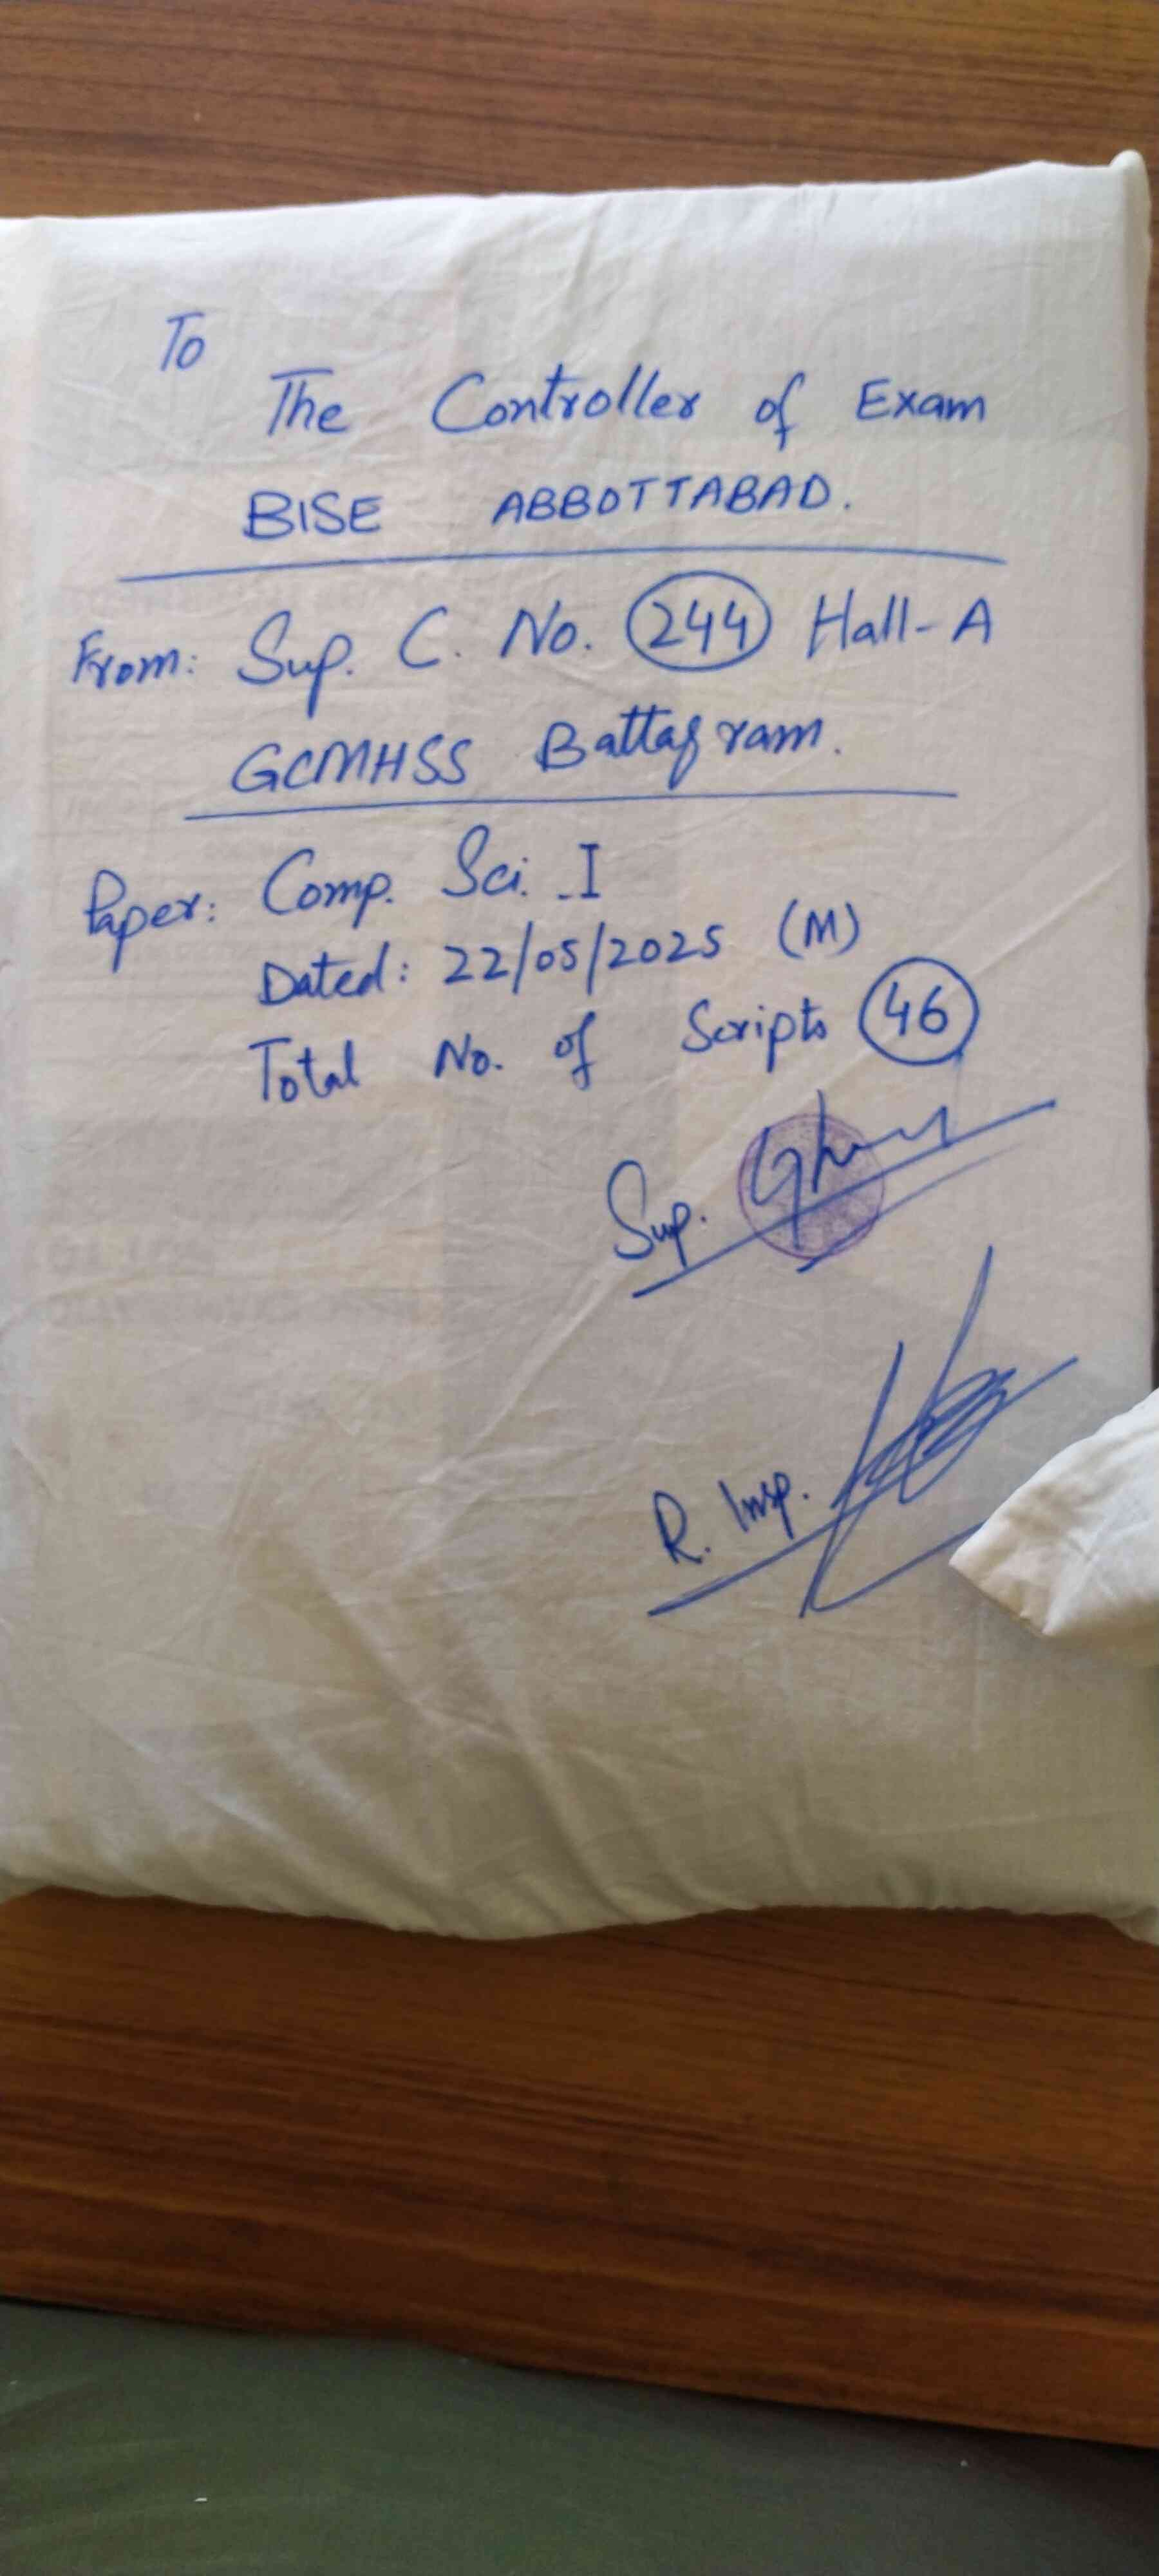 To
The Controller of Exam
BISE ABBOTTABAD.
From: Sup. C. No. 244 Hall-A
GCMHSS Battagram.
Paper: Comp. Sci. I
Dated: 22/05/2025 (M)
Total No. of Scripts 46
Sup.
R. Insp.